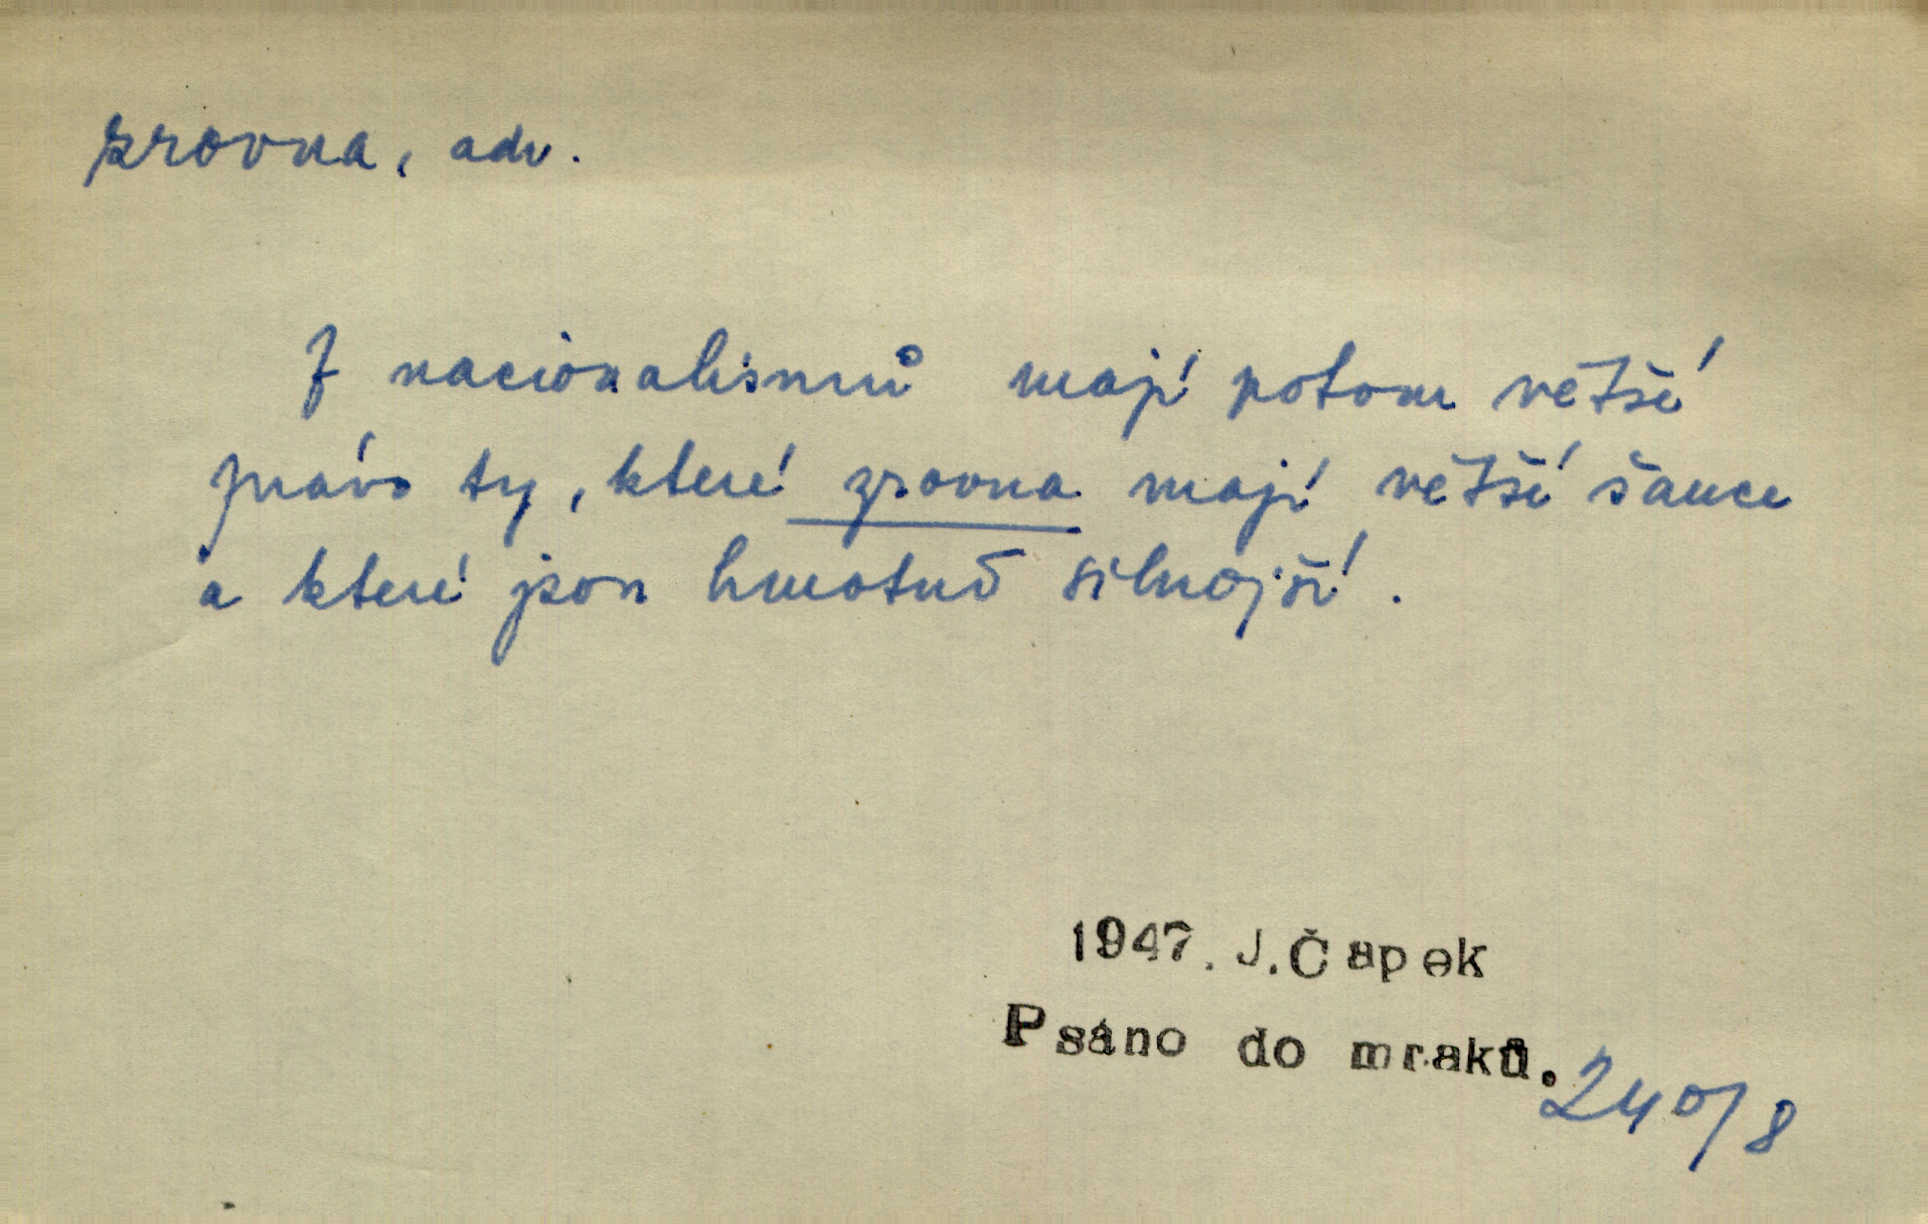 zrovna, adv.
Z nacionalismů mají potom větší
právo ty, které zrovna mají větší šance
a které jsou hmotně silnější.
1947. J. Čapek
Psáno do mraků.
240/8